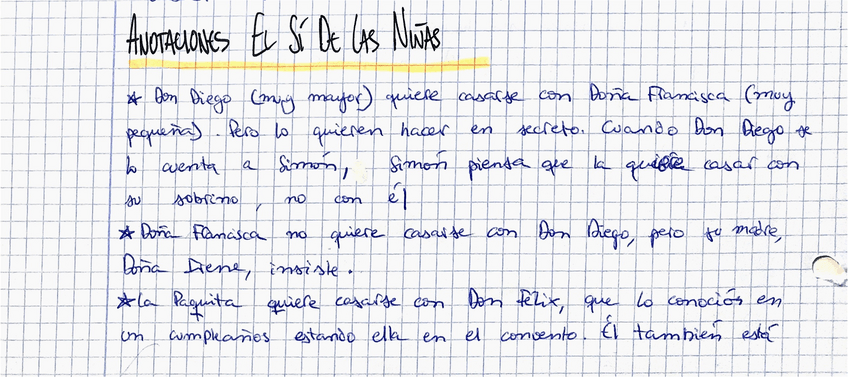 ANOTACIONES EL SÍ DE LAS NIÑAS
* Don Diego (muy mayor) quiere casarse con Doña Francisca (muy
pequeña). Pero lo quieren hacer en secreto. Cuando Don Diego se
lo cuenta a Simón, Simón piensa que la quiere casar con
su sobrino, no con él
* Doña Francisca no quiere casarse con Don Diego, pero su madre,
Doña Irene, insiste.
* La Paquita quiere casarse con Don Félix, que lo conoció en
un cumpleaños estando ella en el convento. Él también está